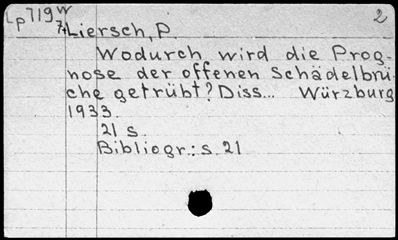 Lp719w 2
7+Liersch, P.
Wodurch wird die Prog-
nose der offenen Schädelbrü-
che getrübt? Diss... Würzburg
1933.
21 s.
Bibliogr.: s. 21